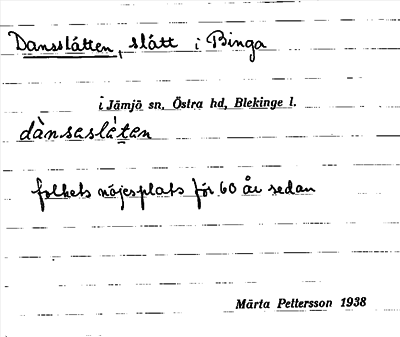 Dansslätten, slätt i Binga
i Jämjö sn, Östra hd, Blekinge l.
dànsasláten
folkets nöjesplats för 60 år sedan
Märta Pettersson 1938